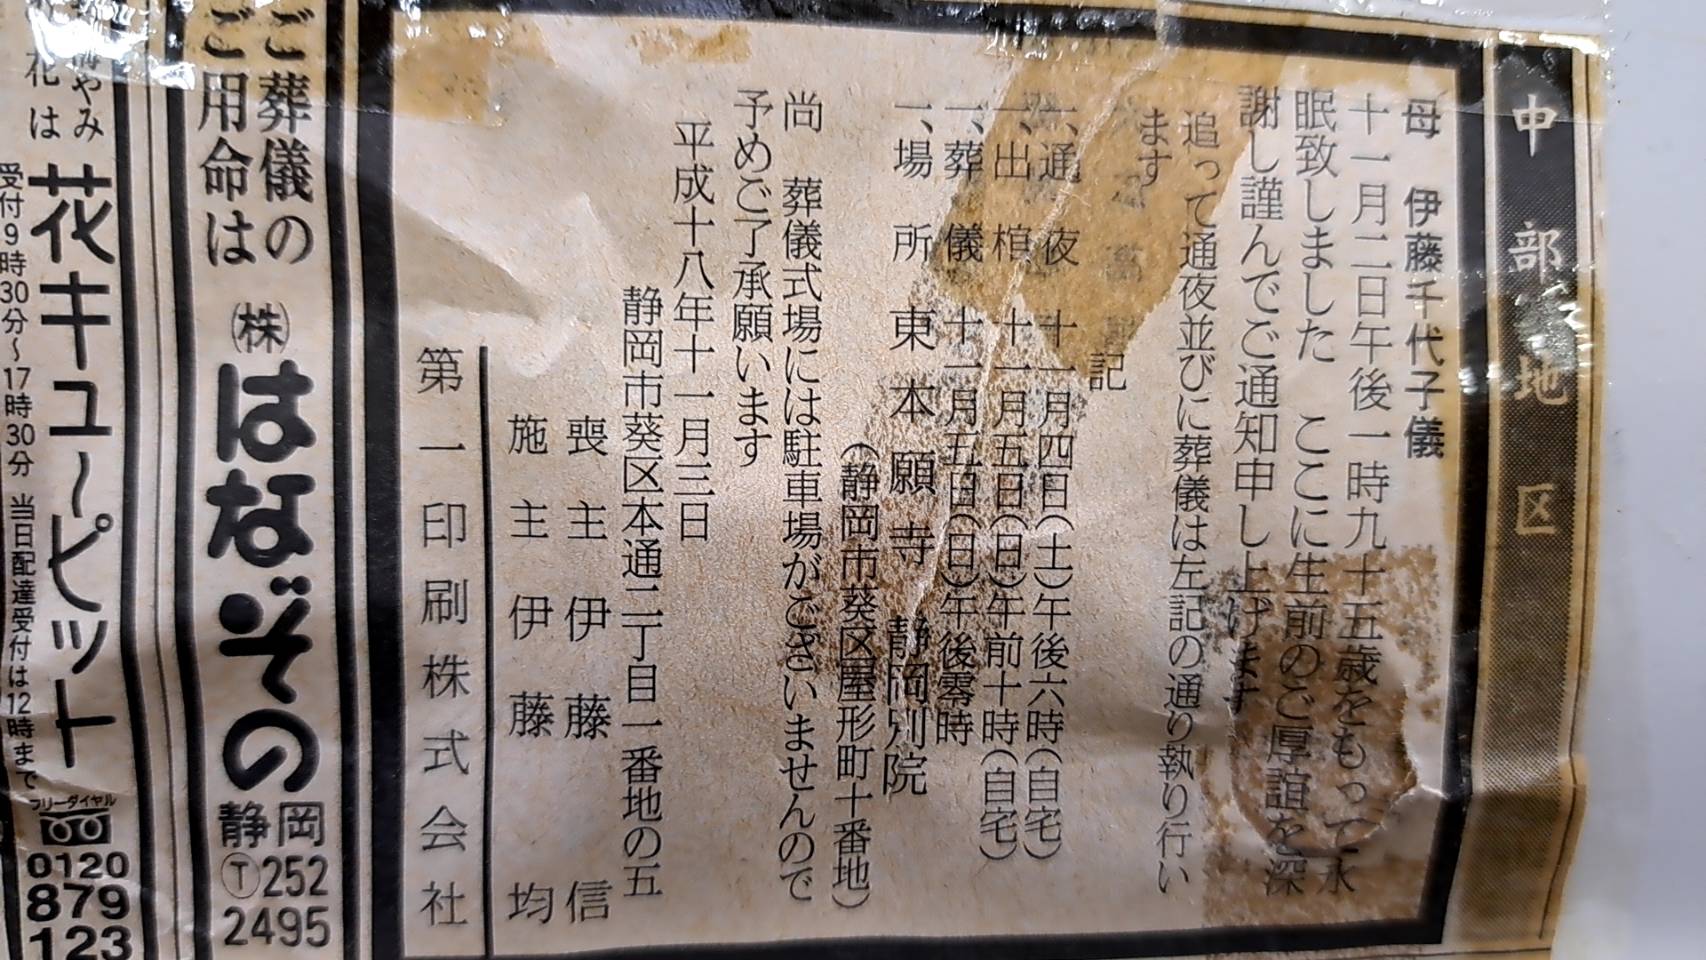 中部地区
母 伊藤千代子儀
十一月二日午後一時九十五歳をもって永
眠致しました ここに生前のご厚誼を深
謝し謹んでご通知申し上げます
追って通夜並びに葬儀は左記の通り執り行い
ます
記
一、通夜 十一月四日(土)午後六時(自宅)
一、出棺 十一月五日(日)午前十時(自宅)
一、葬儀 十一月五日(日)午後零時
一、場所 東本願寺 静岡別院
(静岡市葵区屋形町十番地)
尚 葬儀式場には駐車場がございませんので
予めご了承願います
平成十八年十一月三日
静岡市葵区本通二丁目一番地の五
喪主 伊藤 信
施主 伊藤 均
第一印刷株式会社
ご葬儀の
ご用命は
㈱はなぞの
静岡
Ⓣ252
2495
やみ
花は
花キューピット
受付9時30分~17時30分 当日配達受付は12時まで
フリーダイヤル
0120
879
123